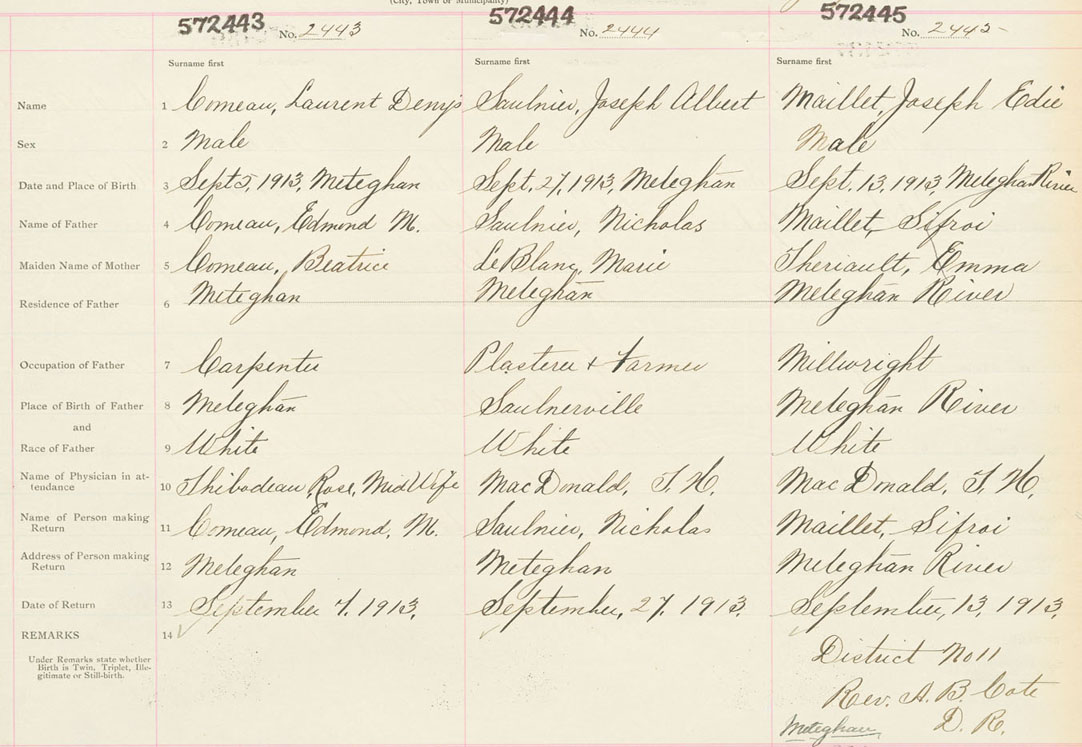 (City, Town or Municipality)
572443 572444 572445
No. 2443 No. 2444 No. 2445
Surname first Surname first Surname first
Name 1 Comeau, Laurent Denys Saulnier, Joseph Albert Maillet, Joseph Edie
Sex 2 Male Male Male
Date and Place of Birth 3 Sept 5, 1913, Meteghan Sept. 27, 1913, Meteghan Sept. 13, 1913, Meteghan River
Name of Father 4 Comeau, Edmond M. Saulnier, Nicholas Maillet, Sifroi
Maiden Name of Mother 5 Comeau, Beatrice LeBlanc, Marie Theriault, Emma
Residence of Father 6 Meteghan Meteghan Meteghan River
Occupation of Father 7 Carpenter Plasterer + Farmer Millwright
Place of Birth of Father 8 Meteghan Saulnerville Meteghan River
and
Race of Father 9 White White White
Name of Physician in at-
tendance 10 Thibodeau, Rose, MidWife MacDonald, T. H. MacDonald, T. H.
Name of Person making
Return 11 Comeau, Edmond, M. Saulnier, Nicholas Maillet, Sifroi
Address of Person making
Return 12 Meteghan Meteghan Meteghan River
Date of Return 13 September 7, 1913. September, 27, 1913. September, 13, 1913.
REMARKS 14
Under Remarks state whether
Birth is Twin, Triplet, Ille-
gitimate or Still-birth.
District No 11
Rev. A. B. Cote
Meteghan D. R.